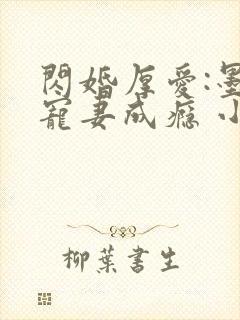 閃婚厚愛:墨
寵妻成癮 小
柳葉書生